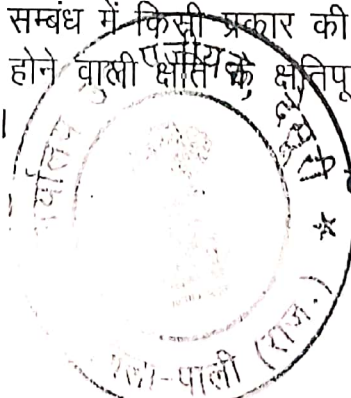 सम्बंध में किसी प्रकार की
होने वाली क्षति के क्षतिपू
।
पंजीयक देसूरी *
पाली (राज.)